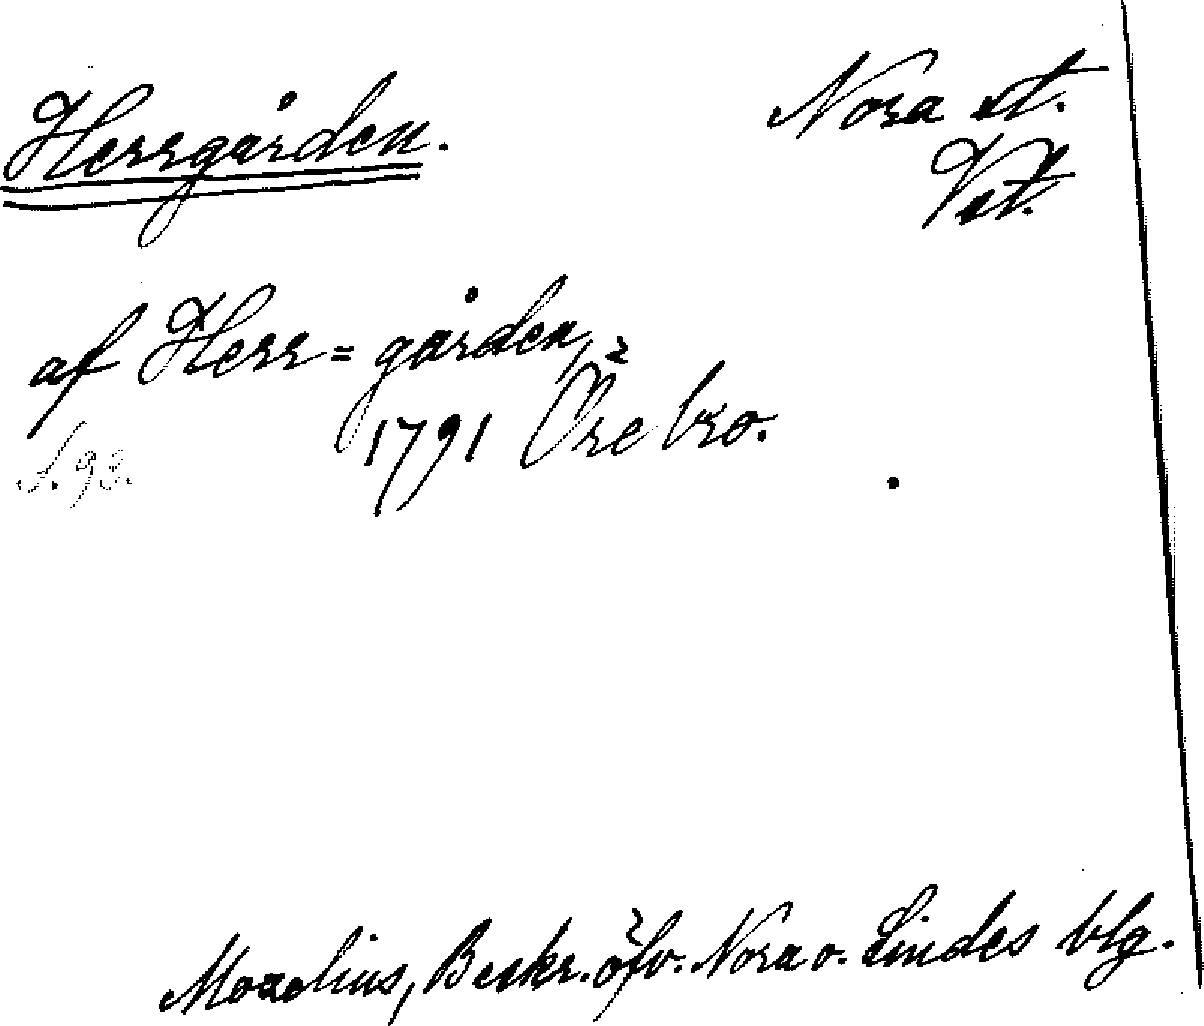 Herrgården.
Nora st.
Vst.
af Herr=gården,
1791 Örebro.
S. 93.
Morelius, Beskr. öfv. Nora o. Lindes blg.